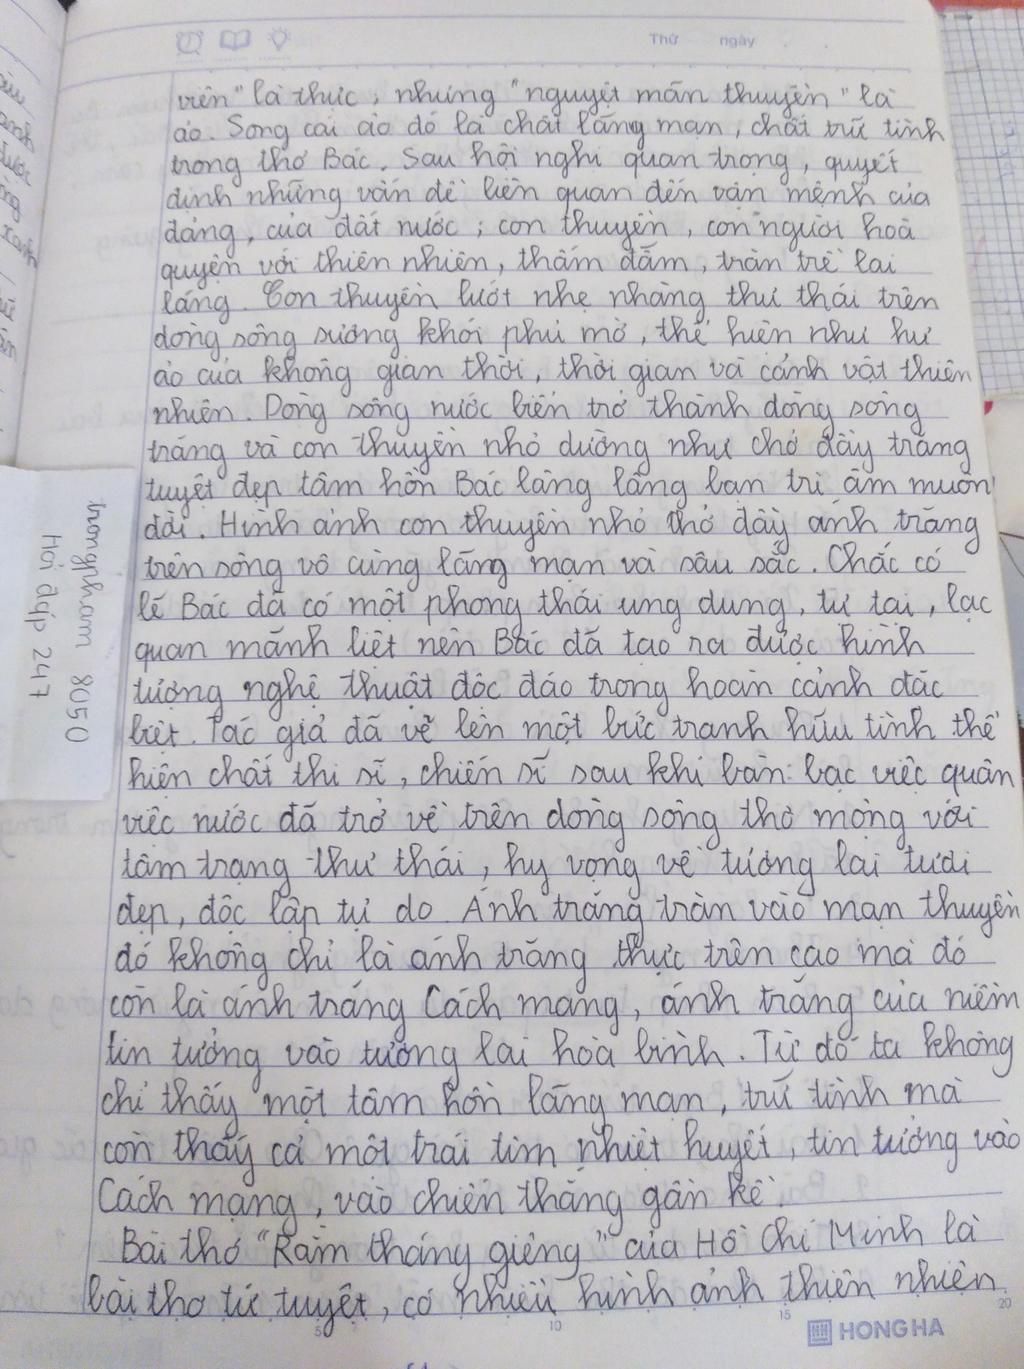 Thứ ngày
viên" là thực, nhưng "nguyệt mãn thuyền" là
ảo. Song cái ảo đó là chất lãng mạn, chất trữ tình
trong thơ Bác. Sau hội nghị quan trọng, quyết
định những vấn đề liên quan đến vận mệnh của
đảng, của đất nước; con thuyền, con người hoà
quyện với thiên nhiên, thấm đẫm, tràn trề lai
láng. Con thuyền lướt nhẹ nhàng thư thái trên
dòng sông sương khói phủ mờ, thể hiện như hư
ảo của không gian thời, thời gian và cảnh vật thiên
nhiên. Dòng sông nước biến trở thành dòng sông
trăng và con thuyền nhỏ dường như chở đầy trăng
tuyệt đẹp tâm hồn Bác lâng lâng bạn tri âm muôn
đời. Hình ảnh con thuyền nhỏ thở đầy ánh trăng
trên sông vô cùng lãng mạn và sâu sắc. Chắc có
lẽ Bác đã có một phong thái ung dung, tự tại, lạc
quan mãnh liệt nên Bác đã tạo ra được hình
tượng nghệ thuật độc đáo trong hoàn cảnh đặc
biệt. Tác giả đã vẽ lên một bức tranh hữu tình thể
hiện chất thi sĩ, chiến sĩ sau khi bàn bạc việc quân
việc nước đã trở về trên dòng sông thơ mộng với
tâm trạng thư thái, hy vọng về tương lai tươi
đẹp, độc lập tự do. Ánh trăng tràn vào mạn thuyền
đó không chỉ là ánh trăng thực trên cao mà đó
còn là ánh trăng Cách mạng, ánh trăng của niềm
tin tưởng vào tương lai hoà bình. Từ đó ta không
chỉ thấy một tâm hồn lãng mạn, trữ tình mà
còn thấy cả một trái tim nhiệt huyết, tin tưởng vào
Cách mạng, vào chiến thắng gần kề.
Bài thơ "Rằm tháng giêng" của Hồ Chí Minh là
bài thơ tứ tuyệt, có nhiều hình ảnh thiên nhiên
5 10 15 20
HONG HA
trongpham 8050
Hỏi đáp 247